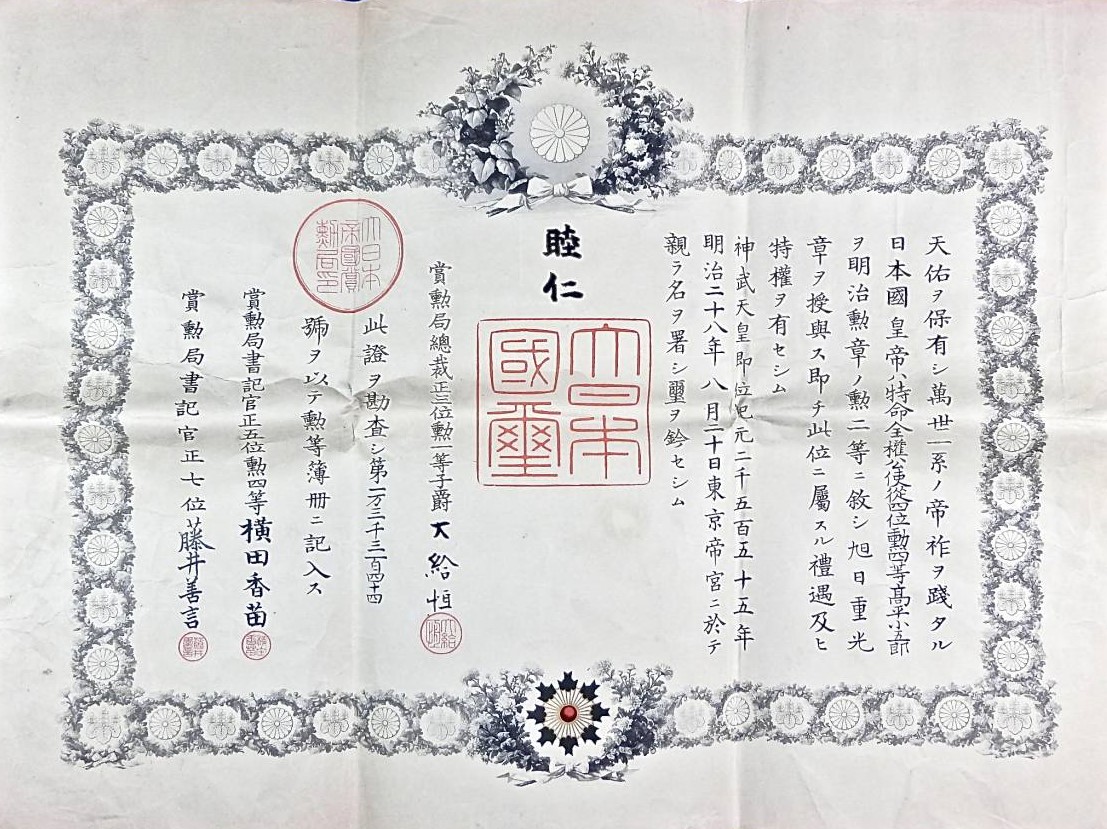 天佑ヲ保有シ萬世一系ノ帝祚ヲ踐タル
日本國皇帝ハ特命全權公使從四位勲四等高平小五郎
ヲ明治勲章ノ勲二等ニ敘シ旭日重光
章ヲ授與ス即チ此位ニ屬スル禮遇及ヒ
特權ヲ有セシム
神武天皇即位紀元二千五百五十五年
明治二十八年八月二十日東京帝宮ニ於テ
親ラ名ヲ署シ璽ヲ鈐セシム
睦仁
大日本
國璽
賞勲局總裁正三位勲一等子爵大給恒
大日本
帝國賞
勲局印
此證ヲ勘査シ第一万二千三百四十四
號ヲ以テ勲等簿册ニ記入ス
賞勲局書記官正五位勲四等横田香苗
賞勲局書記官正七位藤井善言